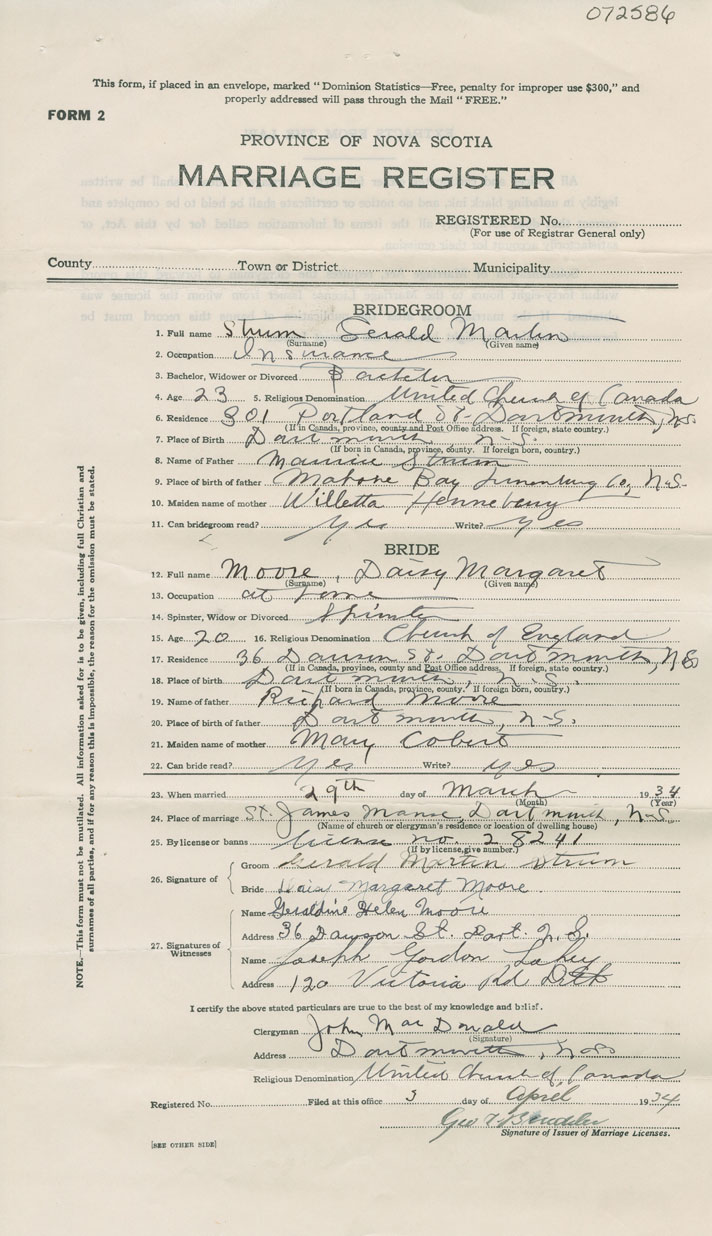 072586
This form, if placed in an envelope, marked "Dominion Statistics—Free, penalty for improper use $300," and
properly addressed will pass through the Mail "FREE."
FORM 2
PROVINCE OF NOVA SCOTIA
MARRIAGE REGISTER
REGISTERED No.
(For use of Registrar General only)
County Town or District Municipality
BRIDEGROOM
1. Full name Strum Gerald Martin
(Surname) (Given name)
2. Occupation Insurance
3. Bachelor, Widower or Divorced Bachelor
4. Age 23 5. Religious Denomination United Church of Canada
6. Residence 301 Portland St. Dartmouth, N.S.
(If in Canada, province, county and Post Office address. If foreign, state country.)
7. Place of Birth Dartmouth N.S.
(If born in Canada, province, county. If foreign born, country.)
8. Name of Father Maurice Strum
9. Place of birth of father Mahone Bay Lunenburg Co, N.S.
10. Maiden name of mother Willetta Henneberry
11. Can bridegroom read? Yes Write? Yes
BRIDE
12. Full name Moore, Daisy Margaret
(Surname) (Given name)
13. Occupation at home
14. Spinster, Widow or Divorced Spinster
15. Age 20 16. Religious Denomination Church of England
17. Residence 36 Dawson St. Dartmouth, N.S.
(If in Canada, province, county and Post Office address. If foreign, state country.)
18. Place of Birth Dartmouth, N.S.
(If born in Canada, province, county. If foreign born, country.)
19. Name of father Richard Moore
20. Place of birth of father Dartmouth, N.S.
21. Maiden name of mother Mary
22. Can bride read? Yes Write? Yes
23. When married 29th day of March 1934
(Month) (Year)
24. Place of marriage St. James Manse, Dartmouth, N.S.
(Name of church or clergyman's residence or location of dwelling house)
25. By license or banns license no. 28241
(If by license, give number.)
26. Signature of
Groom Gerald Martin Strum
Bride Daisy Margaret Moore.
27. Signatures of Witnesses
Name Geraldine Helen Moore
Address 36 Dawson St. Dart. N.S.
Name Joseph Gordon Lahey
Address 120 Victoria Rd Dtth
I certify the above stated particulars are true to the best of my knowledge and belief.
Clergyman John MacDonald
(Signature)
Address Dartmouth, N.S.
Religious Denomination United Church of Canada
Registered No. Filed at this office 3 day of April 1934
Geo
Signature of Issuer of Marriage Licenses.
[SEE OTHER SIDE]
NOTE.—This form must not be mutilated. All information asked for is to be given, including full Christian and
surnames of all parties, and if for any reason this is impossible, the reason for the omission must be stated.